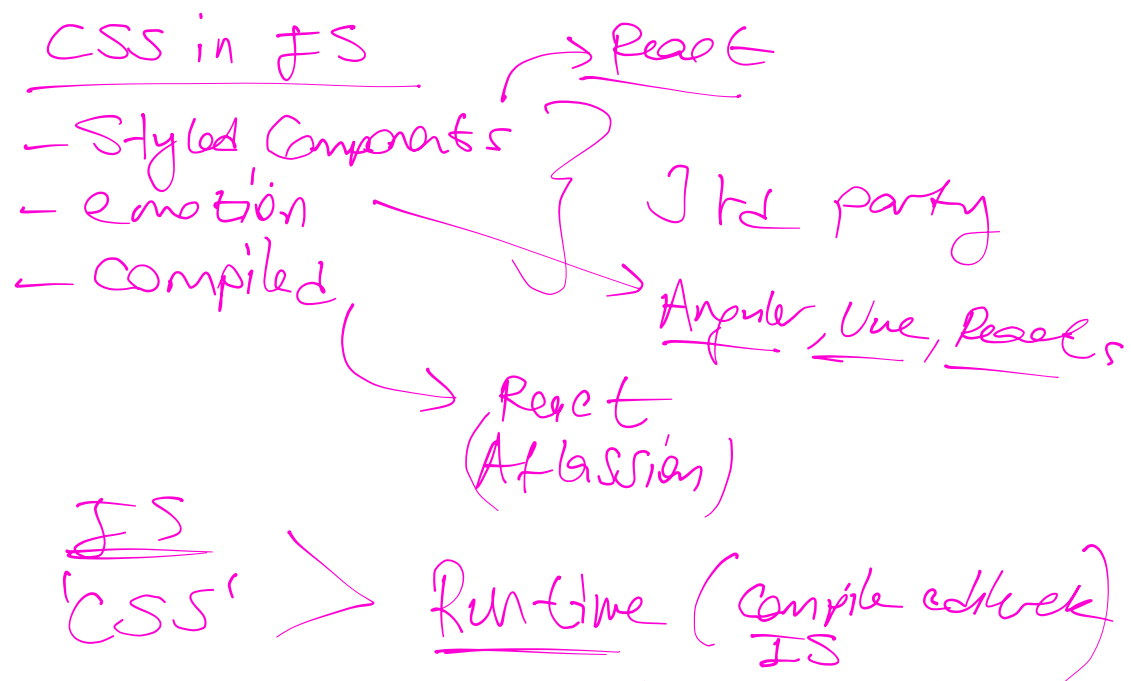 CSS in JS
React
- Styled Components
- emotion
3rd party
- Compiled
Angular, Vue, React,
React
(Atlassian)
JS
'CSS'
Runtime (compile edilerek)
JS